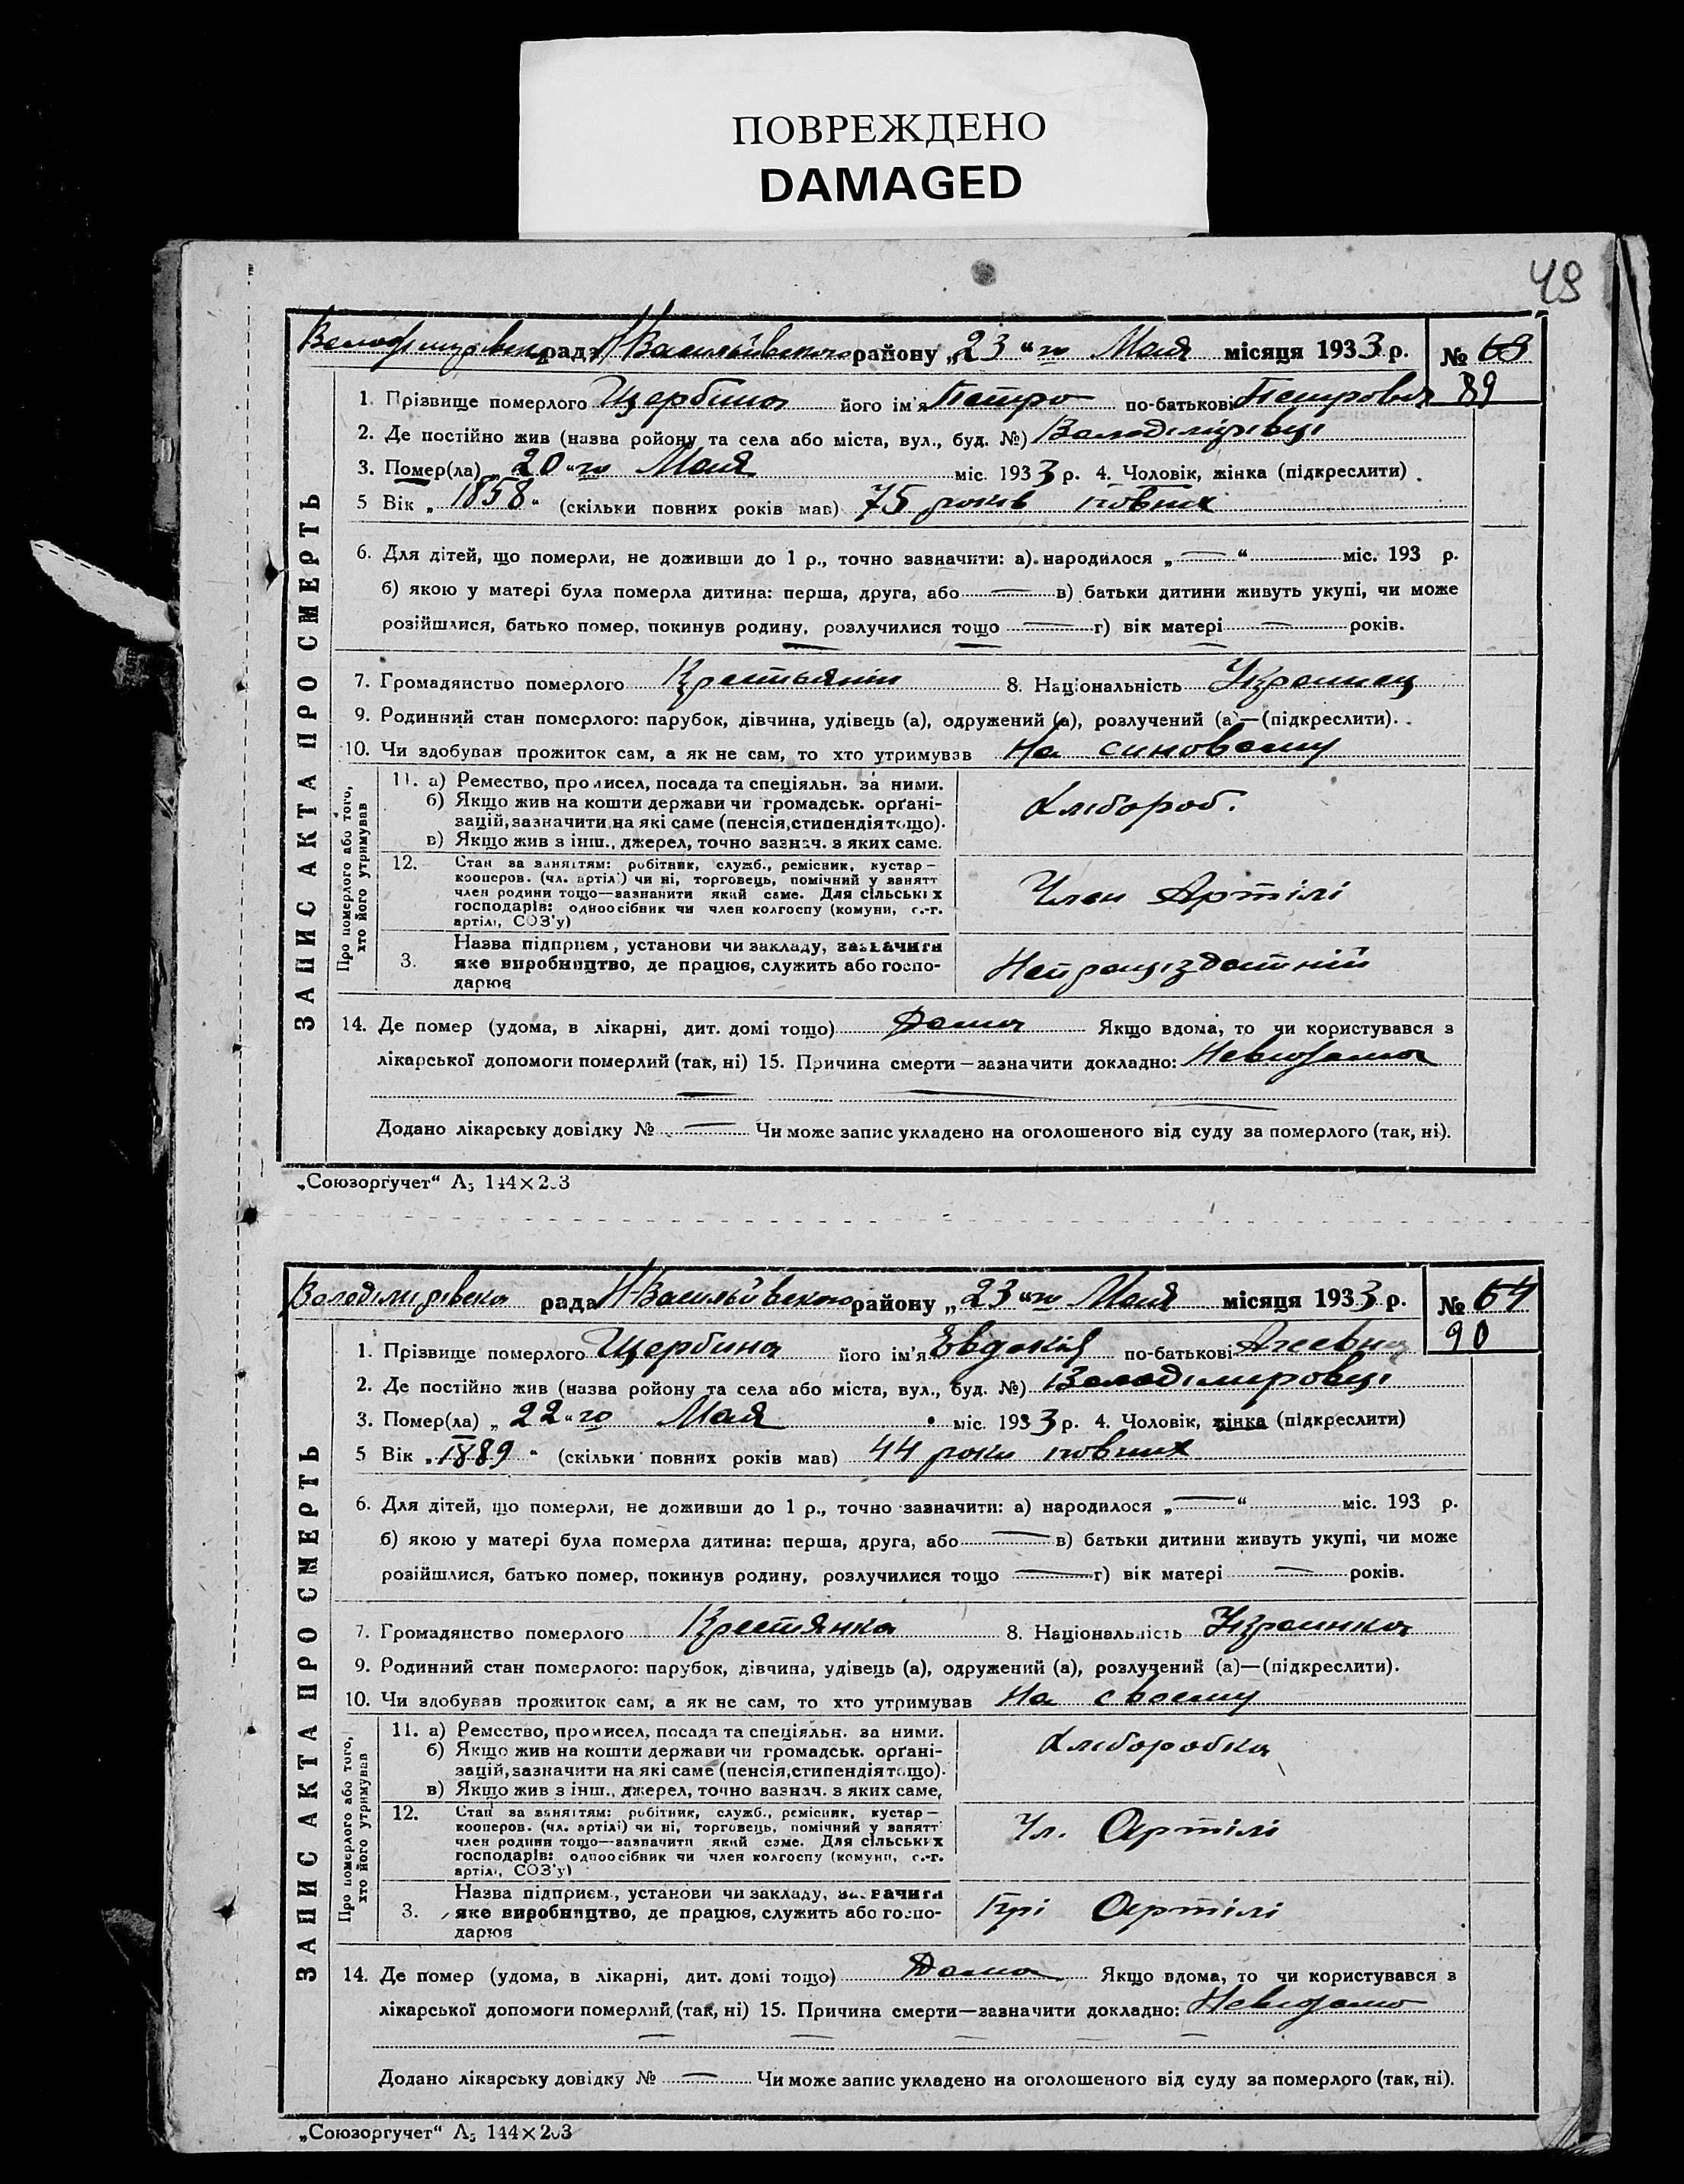 ПОВРЕЖДЕНО
DAMAGED
49
рада Н Васильївського району „23“го Мая місяця 1933 р. № 63
89
1. Прізвище померлого Щербина його ім'я Петро по-батькові Петрович
2. Де постійно жив (назва ройону та села або міста, вул., буд. №) Володіміровці
3. Помер(ла) „20“го Мая міс. 1933 р. 4. Чоловік, жінка (підкреслити)
5 Вік „1858“ (скільки повних років мав) 75 років повних
6. Для дітей, що померли, не доживши до 1 р., точно зазначити: а) народилося „—“ міс. 193 р.
б) якою у матері була померла дитина: перша, друга, або — в) батьки дитини живуть укупі, чи може
розійшлися, батько помер, покинув родину, розлучилися тощо — г) вік матері — років.
7. Громадянство померлого Крестьянін 8. Національність Украинец
9. Родинний стан померлого: парубок, дівчина, удівець (а), одружений (а), розлучений (а)—(підкреслити).
10. Чи здобував прожиток сам, а як не сам, то хто утримував На синовому
11. а) Ремество, промисел, посада та спеціяльн. за ними.
б) Якщо жив на кошти держави чи громадськ. органі-
зацій, зазначити на які саме (пенсія, стипендія тощо).
в) Якщо жив з інш., джерел, точно вазнач. з яких саме.
Хлібороб.
12. Стан за заняттям: робітник, служб., ремісник, кустар—
кооперов. (чл. артілі) чи ні, торговець, помічний у занятт
член родини тощо—зазначити який саме. Для сільських
господарів: одноосібник чи член колгоспу (комуни, с.-г.
артілі, СОЗ'у)
Член Артілі
3. Назва підприєм., установи чи закладу, зазначити
яке виробництво, де працює, служить або госпо-
дарює
Непрацездатний
14. Де помер (удома, в лікарні, дит. домі тощо) Дома Якщо вдома, то чи користувався з
лікарської допомоги померлий (так, ні) 15. Причина смерти—зазначити докладно: Невідома
Додано лікарську довідку № — Чи може запис укладено на оголошеного від суду за померлого (так, ні).
ЗАПИС АКТА ПРО СМЕРТЬ
Про померлого або того,
хто його утримував
„Союзоргучет“ А5 144×203
Володімирівська рада Н-Васильївського району „23“го Мая місяця 1933 р. № 64
90
1. Прізвище померлого Щербина його ім'я Евдокія по-батькові
2. Де постійно жив (назва ройону та села або міста, вул., буд. №) Володимировці
3. Помер(ла) „22“го Мая міс. 1933 р. 4. Чоловік, жінка (підкреслити)
5 Вік „1889“ (скільки повних років мав) 44 роки повних
6. Для дітей, що померли, не доживши до 1 р., точно зазначити: а) народилося „—“ міс. 193 р.
б) якою у матері була померла дитина: перша, друга, або — в) батьки дитини живуть укупі, чи може
розійшлися, батько помер, покинув родину, розлучилися тощо — г) вік матері — років.
7. Громадянство померлого Крестянка 8. Національність Украинка
9. Родинний стан померлого: парубок, дівчина, удівець (а), одружений (а), розлучений (а)—(підкреслити).
10. Чи здобував прожиток сам, а як не сам, то хто утримував На своему
11. а) Ремество, промисел, посада та спеціяльн. за ними.
б) Якщо жив на кошти держави чи громадськ. органі-
зацій, зазначити на які саме (пенсія, стипендія тощо).
в) Якщо жив з інш., джерел, точно вазнач. з яких саме,
Хліборобка
12. Стан за заняттям: робітник, служб., ремісник, кустар—
кооперов. (чл. артілі) чи ні, торговець, помічний у занятт
член родини тощо—зазначити який саме. Для сільських
господарів: одноосібник чи член колгоспу (комуни, с.-г.
артілі, СОЗ'у)
Чл. Артілі
3. Назва підприєм., установи чи закладу, зазначити
яке виробництво, де працює, служить або госпо-
дарює
Прі Артілі
14. Де помер (удома, в лікарні, дит. домі тощо) Дома Якщо вдома, то чи користувався з
лікарської допомоги померлий (так, ні) 15. Причина смерти—зазначити докладно: Невідомо
Додано лікарську довідку № — Чи може запис укладено на оголошеного від суду за померлого (так, ні).
ЗАПИС АКТА ПРО СМЕРТЬ
Про померлого або того,
хто його утримував
„Союзоргучет“ А5 144×203